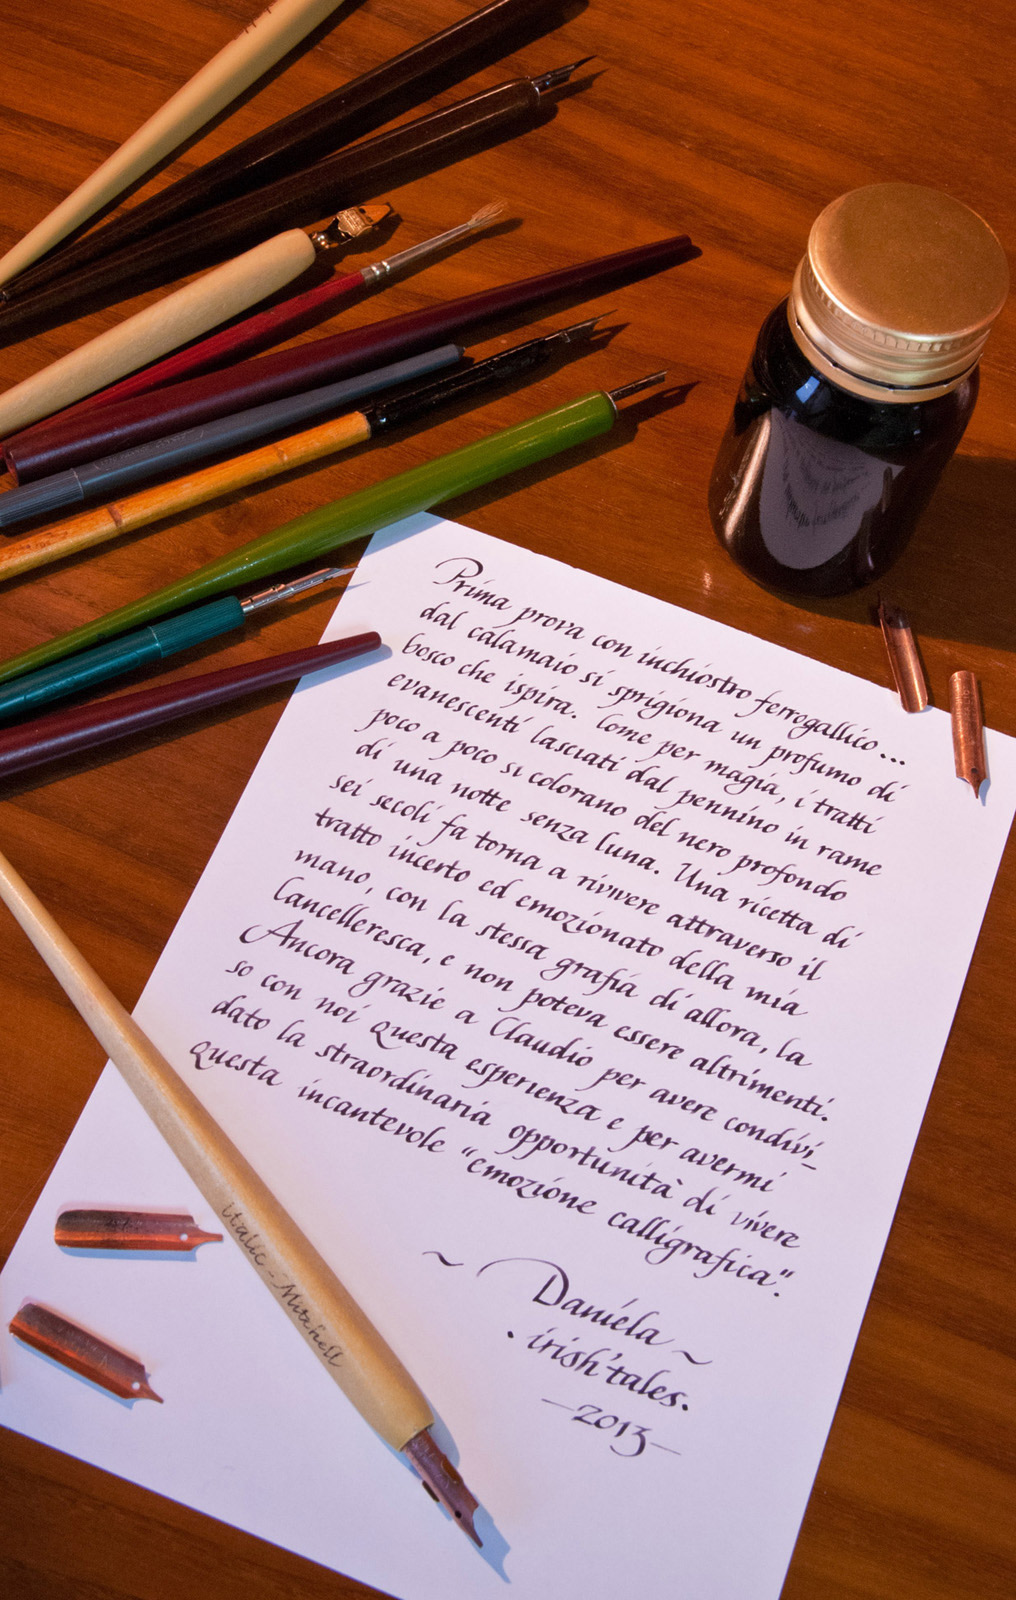 Prima prova con inchiostro ferrogallico...
dal calamaio si sprigiona un profumo di
bosco che ispira. Come per magia, i tratti
evanescenti lasciati dal pennino in rame
poco a poco si colorano del nero profondo
di una notte senza luna. Una ricetta di
sei secoli fa torna a rivivere attraverso il
tratto incerto ed emozionato della mia
mano, con la stessa grafia di allora, la
Cancelleresca, e non poteva essere altrimenti.
Ancora grazie a Claudio per avere condivi_
so con noi questa esperienza e per avermi
dato la straordinaria opportunità di vivere
questa incantevole "emozione calligrafica".
~ Daniela ~
• irish'tales.
—2013—
italic - Mitchell